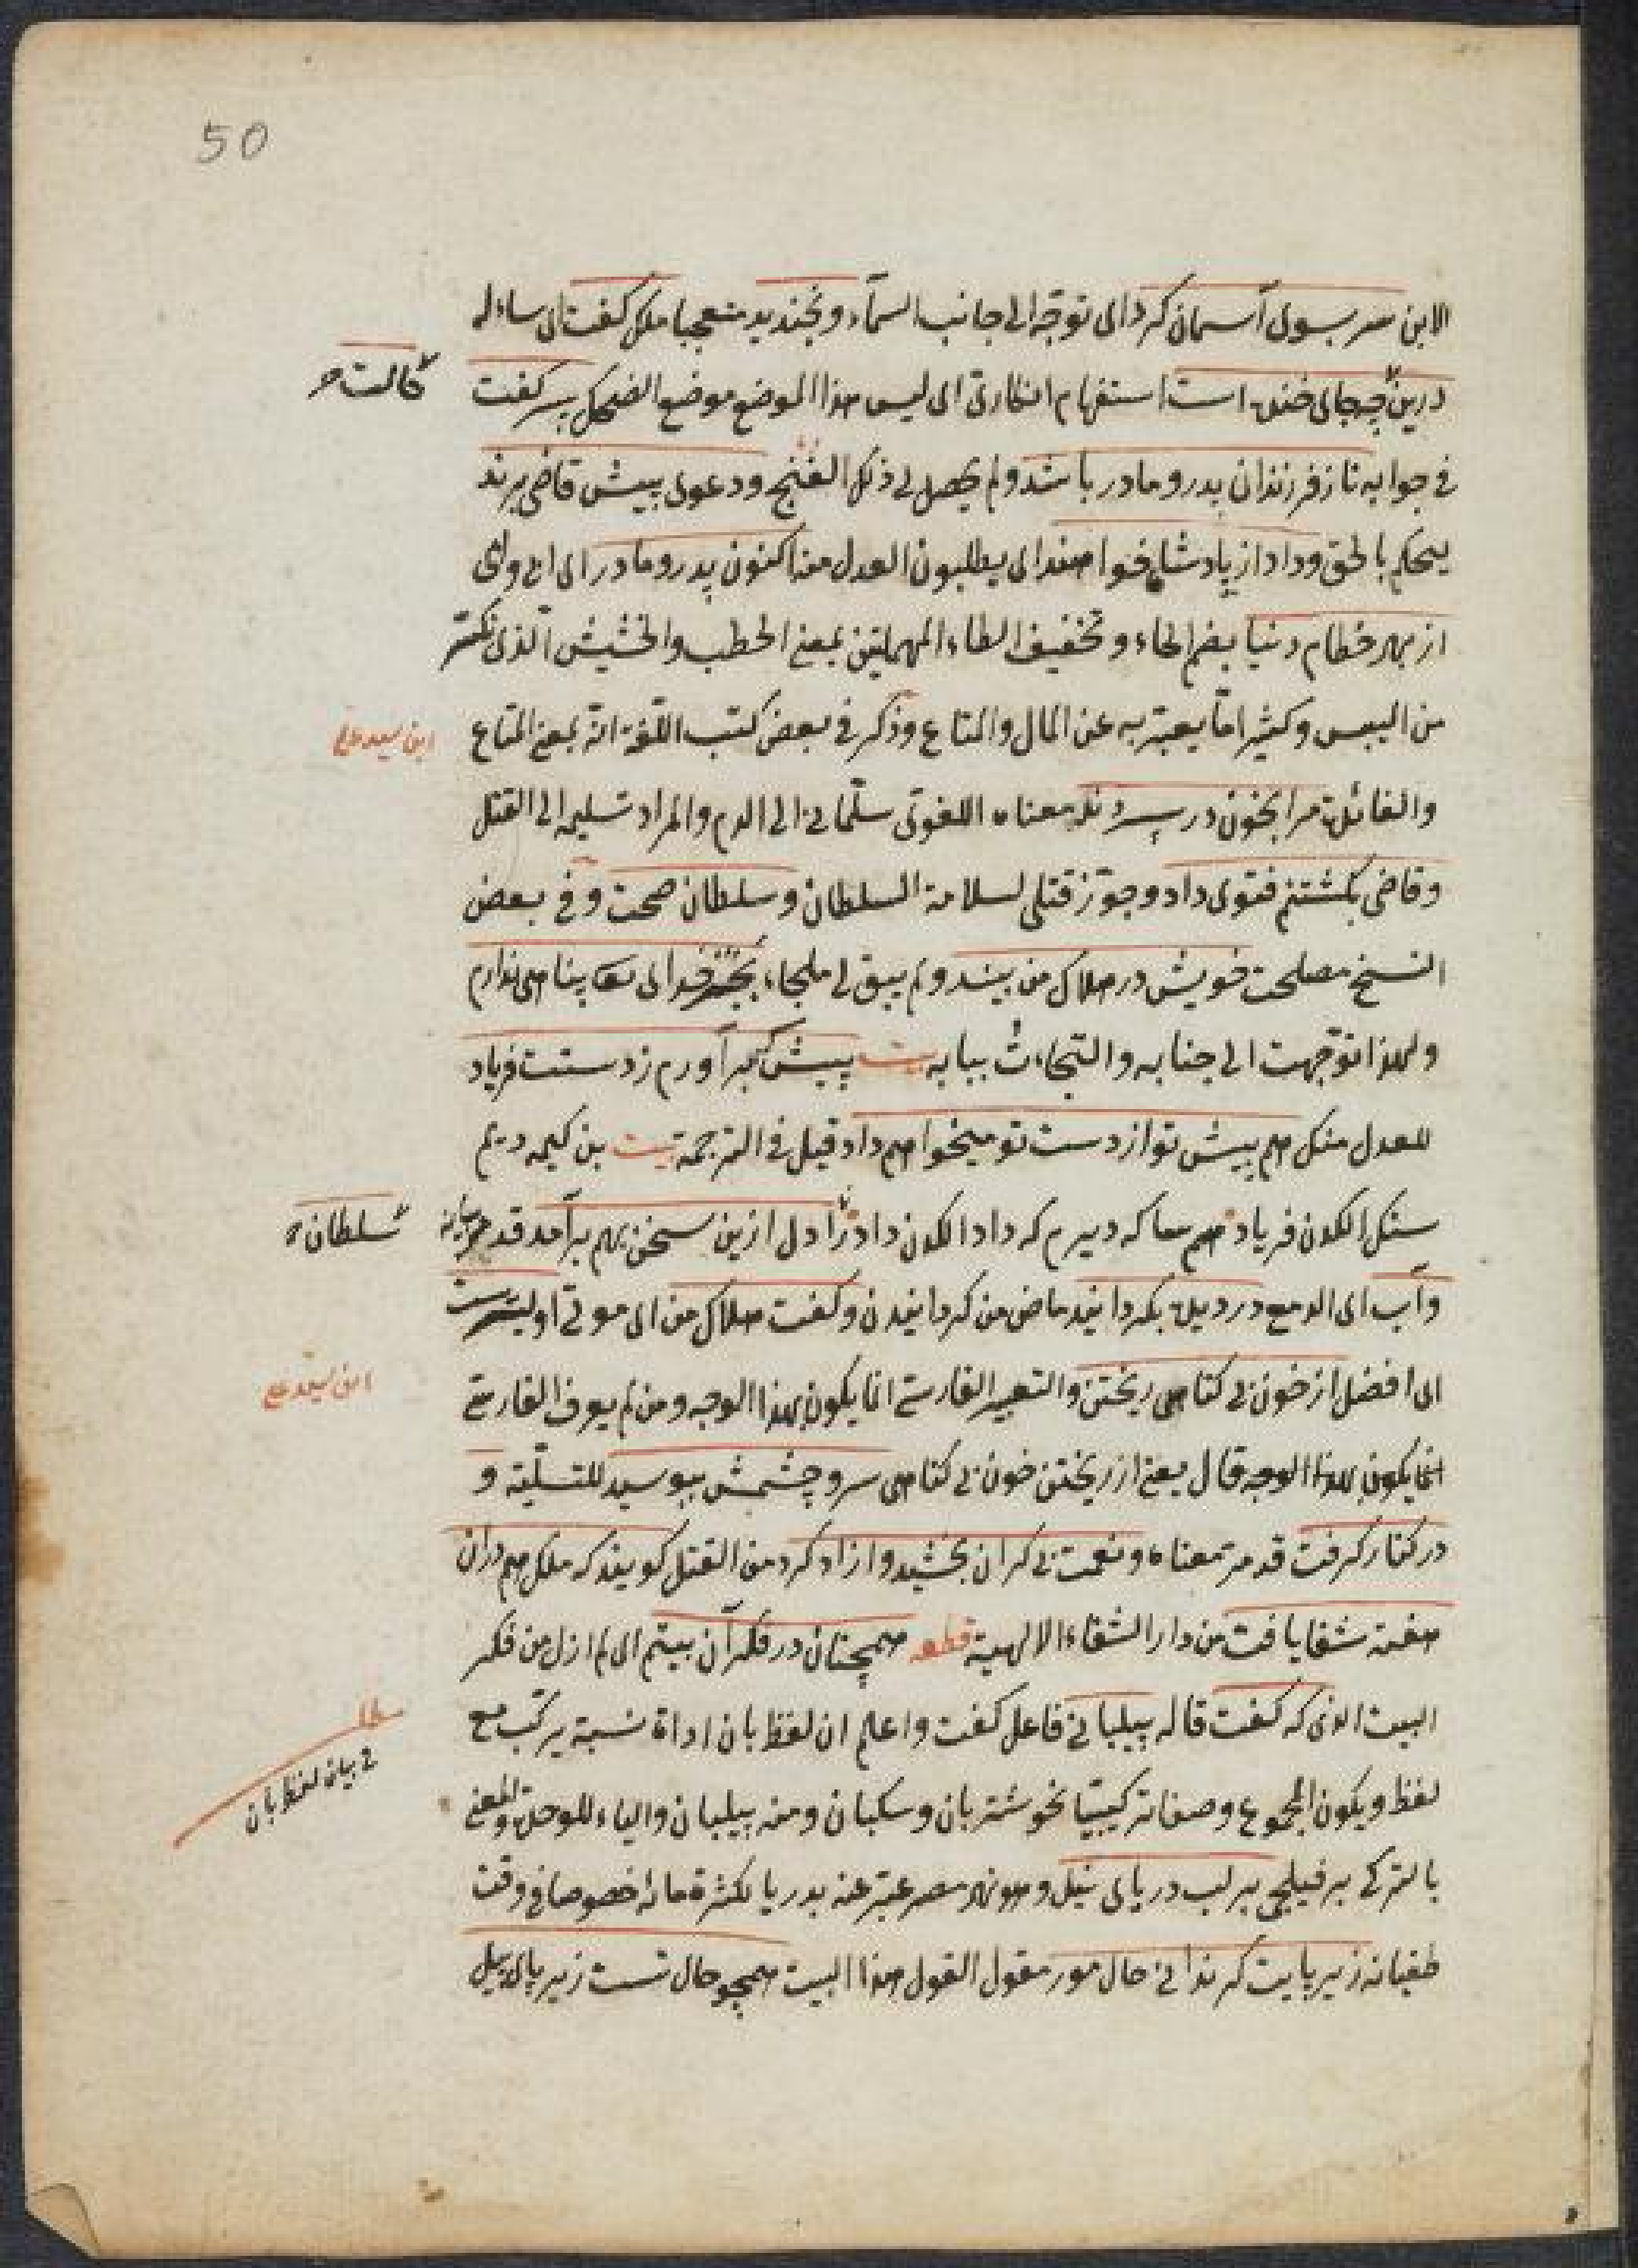 50
الابن سر بسوی آسمان کرد ای توجه الی جانب السمآء و بخندید متعجبا ملک کفت ای ساءله
درین چه جای خنده است استفهام انکاری ای لیس هذا الموضع موضع الضحک پسر کفت
حالت
فی جوابه ناز فرزندان بدر و مادر باشد و لم یحصل لی ذلک الغنج و دعوی پیش قاضی برند
لیحکم بالحق و داد از پادشاه خواهند ای یطلبون العدل منه اکنون پدر و مادر ای ابی و امی
از بهر حطام دنیا بضم الحاء و تخفیف الطاء المهملتین بمعنی الحطب و الحشیش الذی تکسر
من الیبس و کثیرا ما یعبر به عن المال و المتاع و ذکر فی بعض کتب اللغة انه بمعنی المتاع
ابن سید علی
و الفائدة مرا بخون در سپردند معناه اللغوی سلمانی الی الدم و المراد تسلیمه الی القتل
و قاضی بکشتنم فتوی داد و جوز قتلی لسلامة السلطان و سلطان صحت و فی بعض
النسخ مصلحت خویش در هلاک من بیند و لم یبق لی ملجاء بجز خدای تعا پناهی ندارم
و لهذا توجهت الی جنابه و التجاءت ببابه بیت پیش که بر آورم ز دستت فریاد
للعدل منک هم پیش تو از دست تو میخواهم داد قیل فی الترجمة بیت بن کیمه دیم
سنک الکون فریاد هم سعا که دیرم که داد الکون داد را دل ازین سخن بهم برآمد قد مر بیانه
سلطان
و آب ای الدمع در دیده بکردانید ماض من کردانیدن و کفت هلاک من ای موتی اولیترست
ای افضل از خون بی کناهی ریختن و التعبیر الفارسی انما یکون بهذا الوجه و من لم یعرف الفارسی
ابن سید علی
انما یکون بهذا الوجه قال یعنی از ریختن خون بی کناهی سر و چشمش ببوسید للتسلیة و
در کنار کرفت قد مر معناه و نعمت بی کران بخشید و ازاد کرد من القتل کویند که ملک هم دران
هفته شفا یافت من دار الشفاء الالهیة قطعه همچنان در فکر آن بیتم ای لم ازل من فکر
البیت الذی که کفت قاله پیلبانی فاعل کفت و اعلم ان لفظ بان اداة نسبة یرکب مع
فی بیان لفظ بان
لفظ و یکون المجموع وصفا ترکیبیا نحو شتربان و سکبان و منه پیلبان و الیاء للوحدة و المعنی
بالترکی بر فیلجی بر لب دریای نیل و هو نهر مصر عبر عنه بدریا لکثرة مائه خصوصا فی وقت
طغیانه زیر پایت کر بدانی حال مور مقول القول هذا البیت همچو حال تست زیر پای پیل